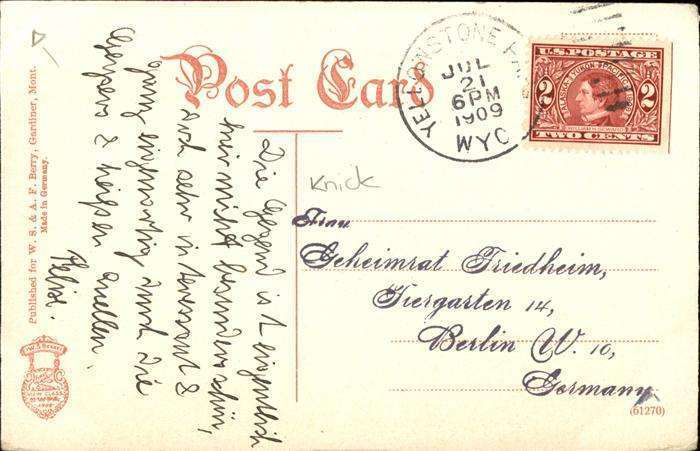 Post Card
YELLOWSTONE PARK
JUL
21
6 PM
1909
WYO
U.S. POSTAGE
2 2
TWO CENTS
Published for W. S. & A. F. Berry, Gardiner, Mont.
Made in Germany.
Die Gegend ist eigentlich
hier nicht besonders schön,
aber sehr interessant &
ganz eigenartig durch die
Geysers & heißen Quellen.
Knick
Frau
Geheimrat Friedheim,
Tiergarten 14,
Berlin W. 10,
Germany
(61270)